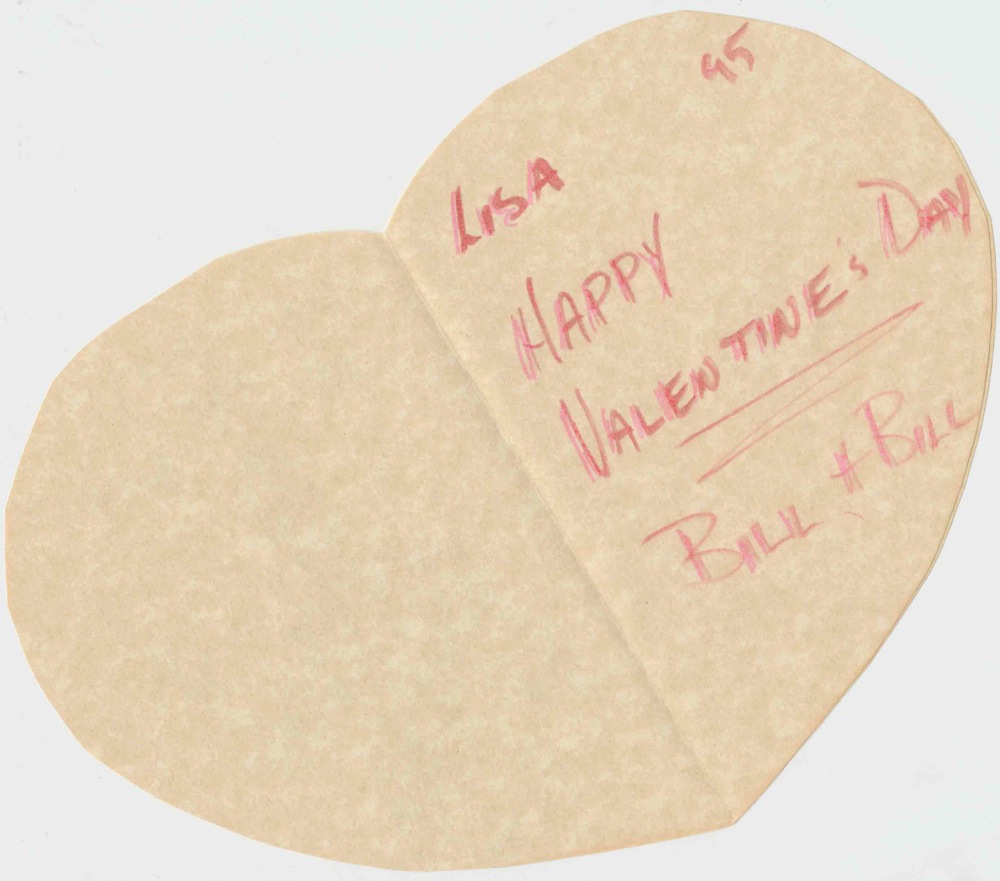 95
LISA
HAPPY
VALENTINE'S DAY
BILL + BILL